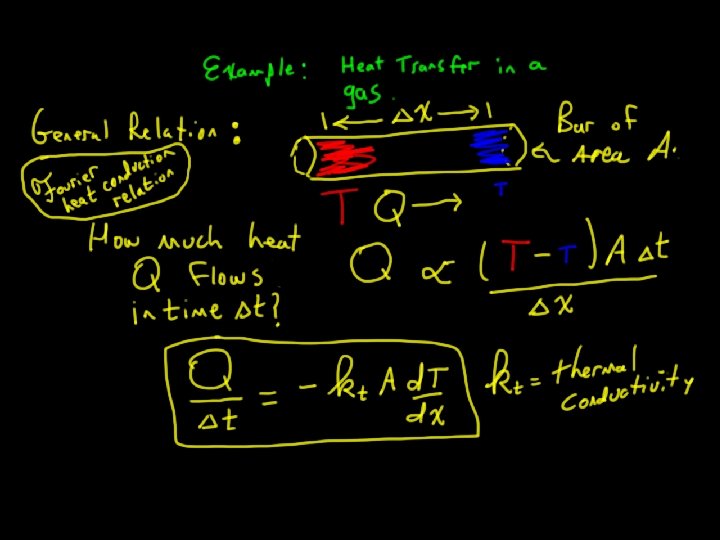 Example: Heat Transfer in a
gas.
General Relation:
Fourier
heat conduction
relation
Δx
Bar of
area A.
T Q → T
How much heat
Q Flows
in time Δt?
Q ∝ (T - T) A Δt
Δx
Q
Δt
= - kt A dT
dx
kt = thermal
conductivity